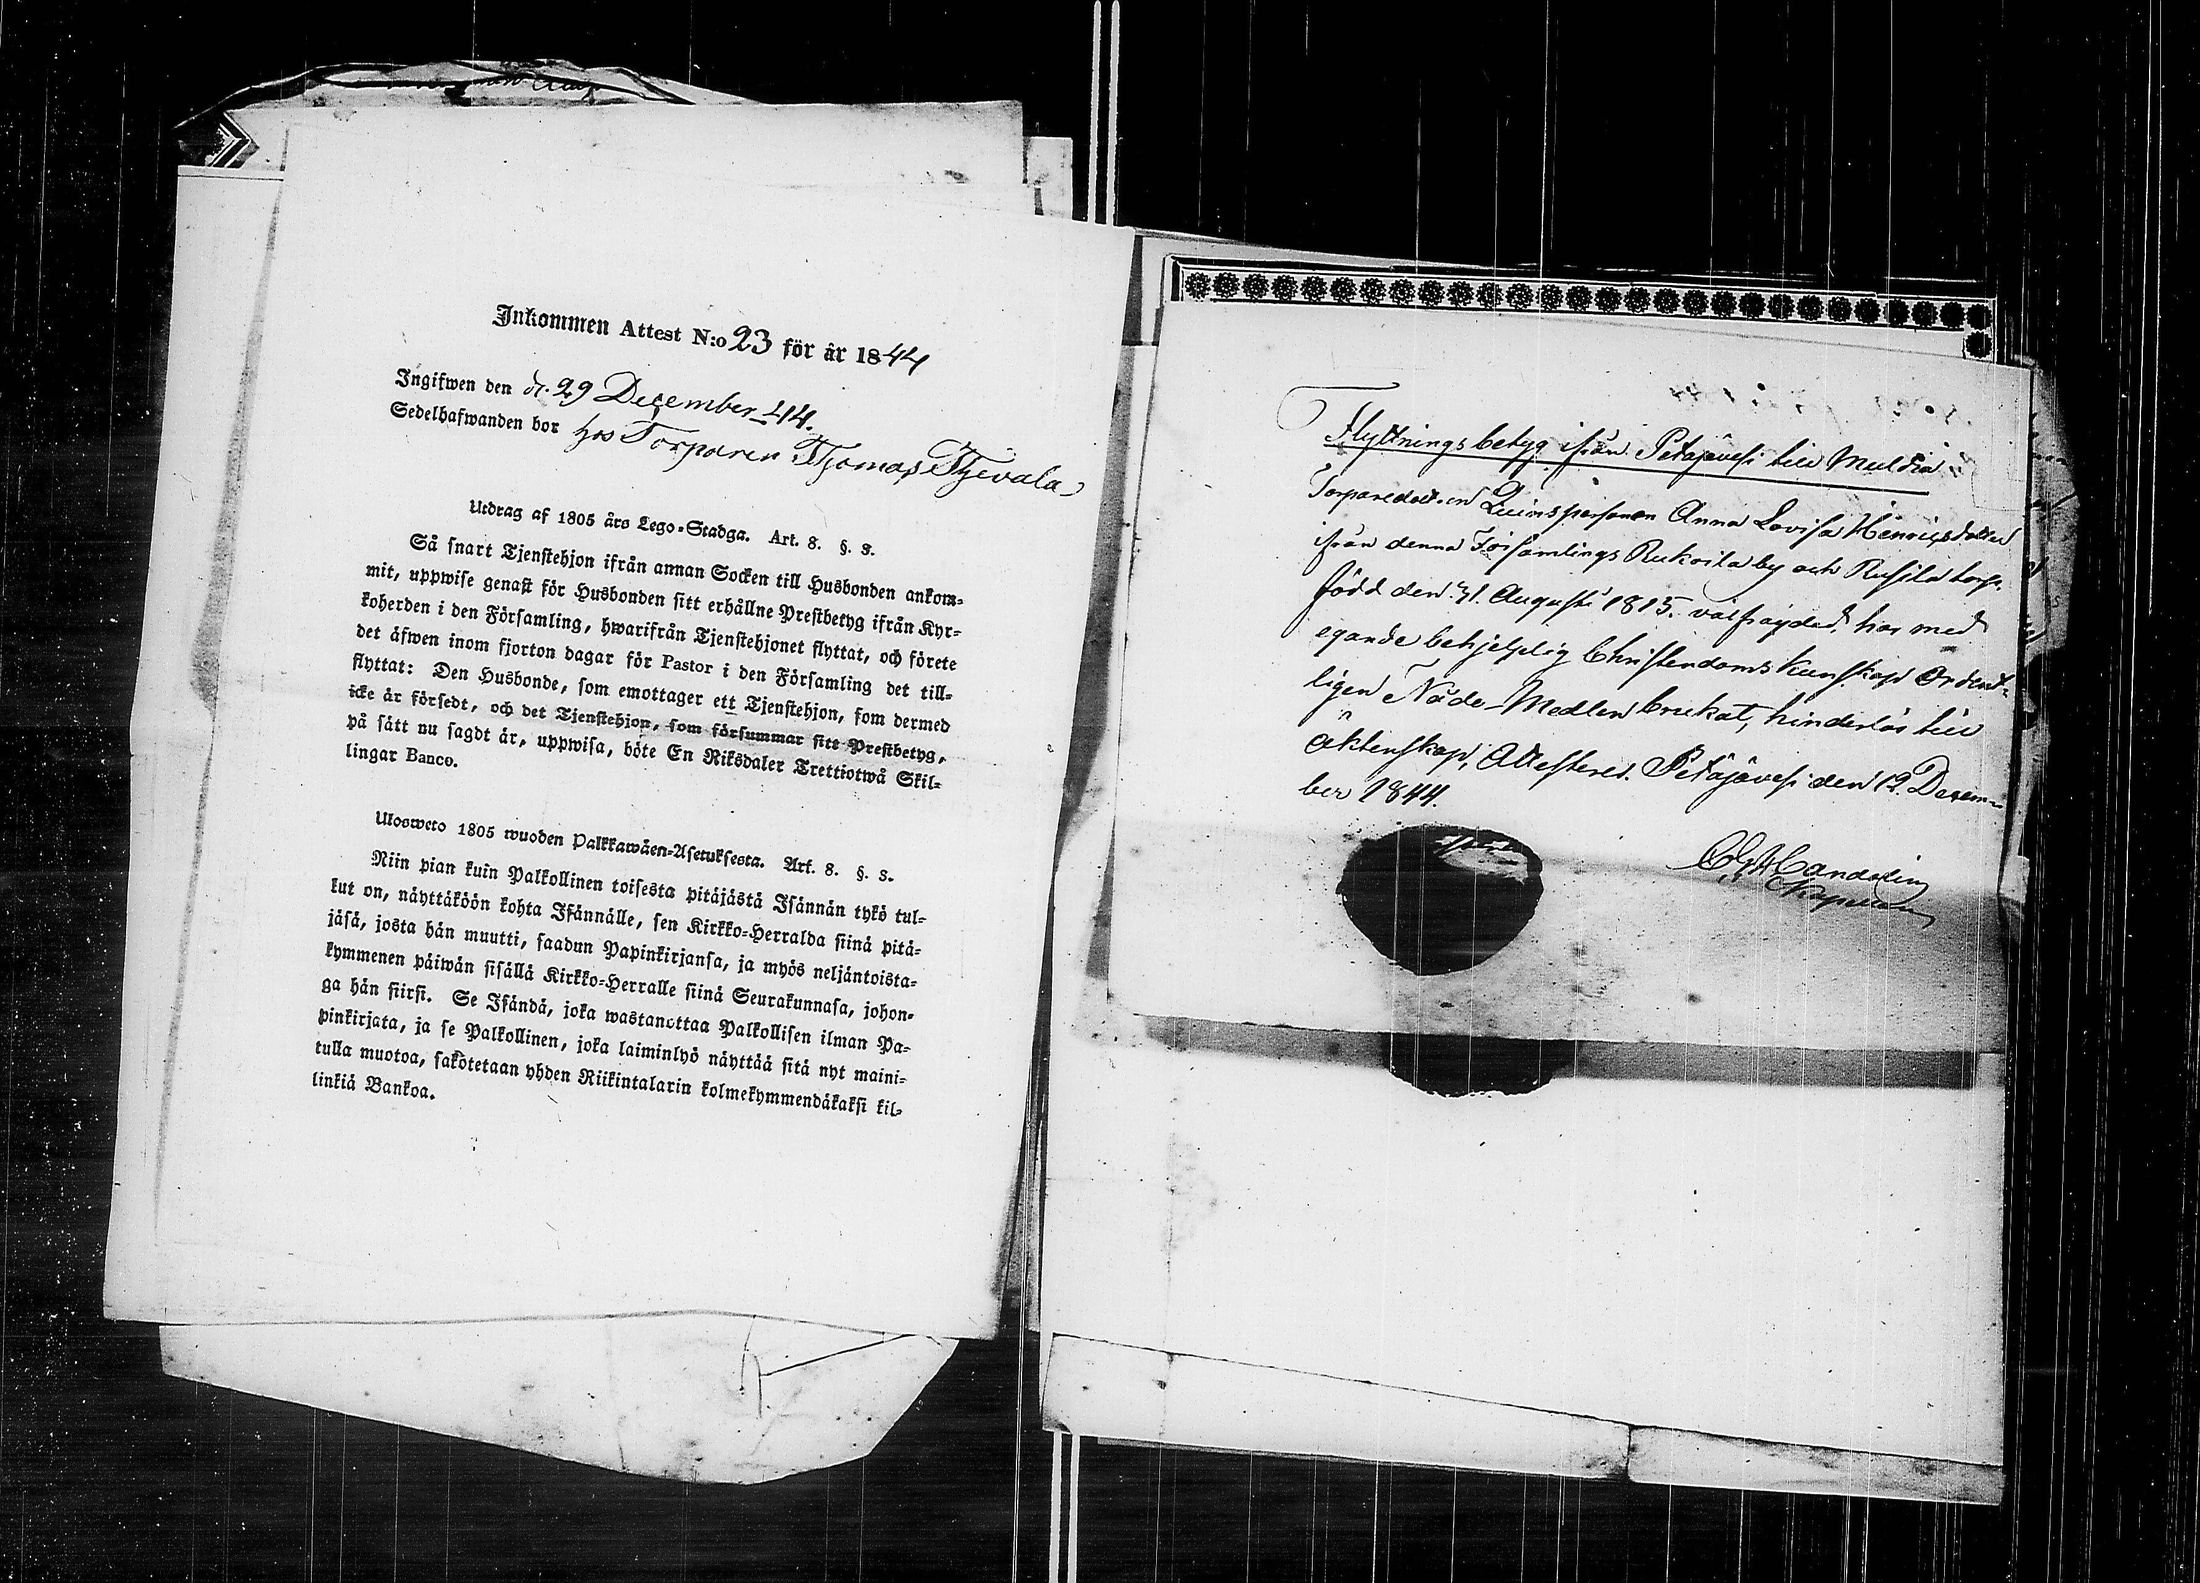 Inkommen Attest N:o 23 för år 1844
Ingifwen den d. 29 December 44.
Sedelhafwanden bor hos Torparen Thomas Thevala
Utdrag af 1805 års Lego-Stadga. Art. 8. §. 3.
Så snart Tjenstehjon ifrån annan Socken till Husbonden ankom-
mit, uppwise genast för Husbonden sitt erhållne Prestbetyg ifrån Kyr-
koherden i den Församling, hwarifrån Tjenstehjonet flyttat, och förete
det äfwen inom fjorton dagar för Pastor i den Församling det till-
flyttat: Den Husbonde, som emottager ett Tjenstehjon, som dermed
icke är försedt, och det Tjenstehjon, som försummar sitt Prestbetyg,
på sätt nu sagdt är, uppwisa, böte En Riksdaler Trettiotwå Skil-
lingar Banco.
Ulosweto 1805 wuoden Palkkawäen-Asetuksesta. Art. 8. §. 3.
Niin pian kuin Palkollinen toisesta pitäjästä Isännän tykö tul-
kut on, näyttäköön kohta Isännälle, sen Kirkko-Herralda siinä pitä-
jäsä, josta hän muutti, saadun Papinkirjansa, ja myös neljäntoista-
kymmenen päiwän sisällä Kirkko-Herralle siinä Seurakunnasa, johon-
ga hän siirsi. Se Isändä, joka wastanottaa Palkollisen ilman Pa-
pinkirjata, ja se Palkollinen, joka laiminlyö näyttää sitä nyt maini-
tulla muotoa, sakotetaan yhden Riikintalarin kolmekymmendäkaksi kil-
linkiä Bankoa.
Flyttningsbetyg ifrån Petäjävesi till Muldia
Torparedott:n Qwinspersonen Anna Lovisa Henricsdotter
ifrån denna Församlings Kukoila by och Rusila torp.
född den 31. Augusti 1815. välfrägdad, har med
egande behjelplig Christendoms kunskap Ordent-
ligen Nåde-Medlen brukat, hinderlös till
äktenskap, Attesteres. Petäjävesi den 12. Decem-
ber 1844.